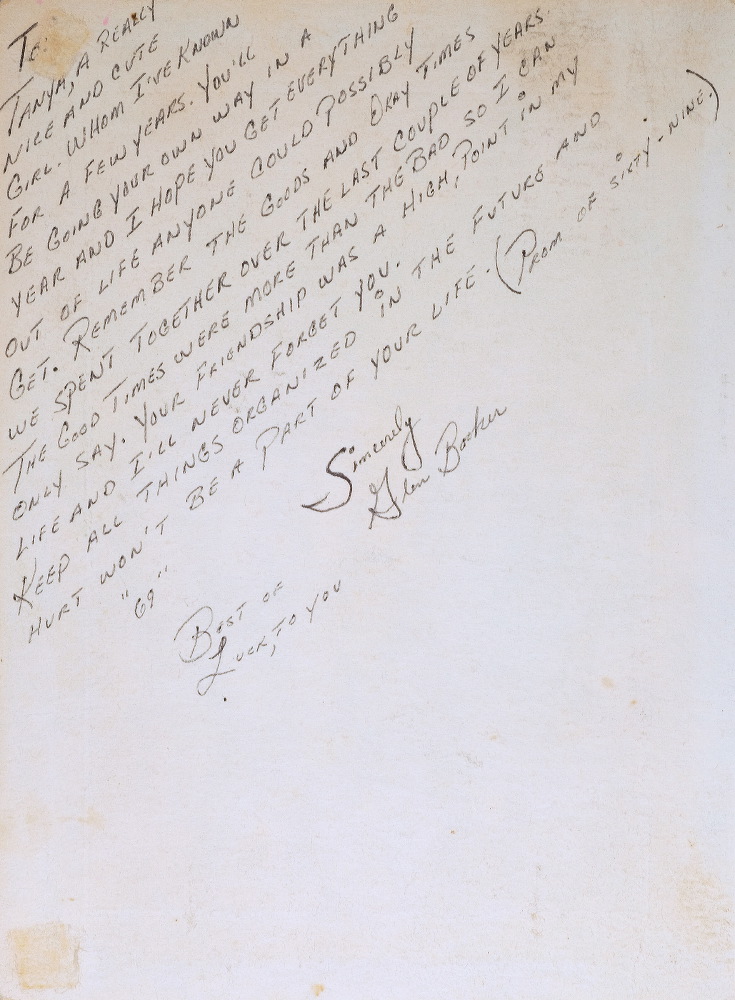 To:
TANYA, A REALLY
NICE AND CUTE
GIRL. WHOM I'VE KNOWN
FOR A FEW YEARS. YOU'LL
BE GOING YOUR OWN WAY IN A
YEAR AND I HOPE YOU GET EVERYTHING
OUT OF LIFE ANYONE COULD POSSIBLY
GET. REMEMBER THE GOODS AND OKAY TIMES
WE SPENT TOGETHER OVER THE LAST COUPLE OF YEARS.
THE GOOD TIMES WERE MORE THAN THE BAD SO I CAN
ONLY SAY. YOUR FRIENDSHIP WAS A HIGH, POINT IN MY
LIFE AND I'LL NEVER FORGET YOU.
KEEP ALL THINGS ORGANIZED IN THE FUTURE AND
HURT WON'T BE A PART OF YOUR LIFE. (PROM OF SIXTY-NINE.)
"69"
Sincerely
Glen Booker
BEST OF
LUCK, TO YOU